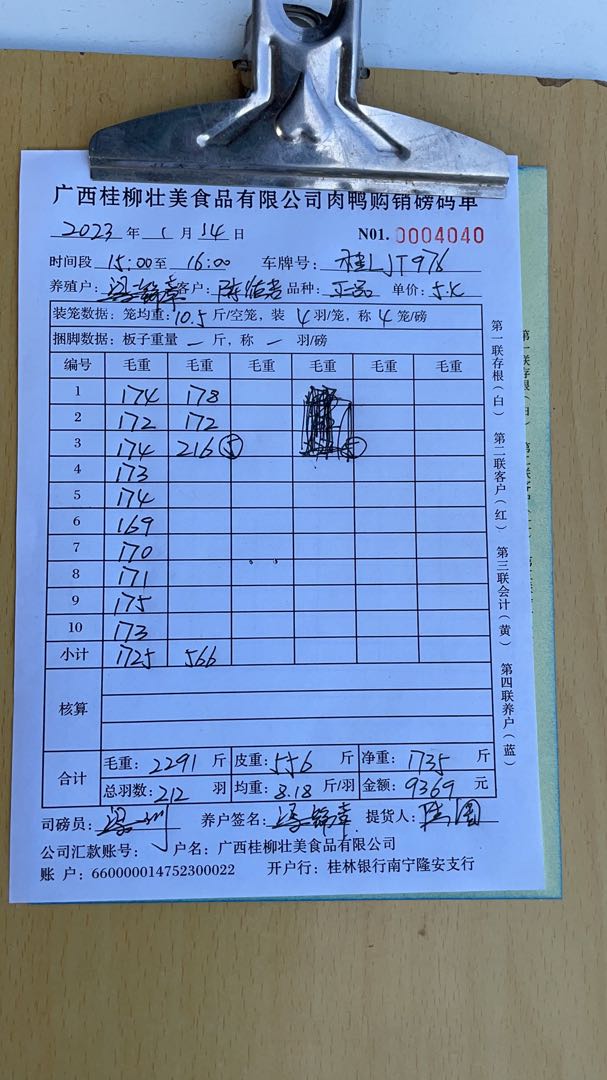 广西桂柳壮美食品有限公司肉鸭购销磅码单
2023 年 1 月 14 日 N01. 0004040
时间段 15:00至 16:00 车牌号: 桂LJT976
养殖户: 梁锦章 客户: 品种: 正品 单价: 5.4
装笼数据: 笼均重: 10.5 斤/空笼, 装 4 羽/笼, 称 4 笼/磅
捆脚数据: 板子重量 — 斤, 称 — 羽/磅
编号 毛重 毛重 毛重 毛重 毛重 毛重
1 174 178
2 172 172
3 174 216 ⑤
4 173
5 174
6 169
7 170
8 171
9 175
10 173
小计 1725 566
核算
合计 毛重: 2291 斤 皮重: 556 斤 净重: 1735 斤
总羽数: 212 羽 均重: 8.18 斤/羽 金额: 9369 元
司磅员: 养户签名: 梁锦章 提货人:
公司汇款账号: 户名: 广西桂柳壮美食品有限公司
账 户: 660000014752300022 开户行: 桂林银行南宁隆安支行
第一联存根(白) 第二联客户(红) 第三联会计(黄) 第四联养户(蓝)